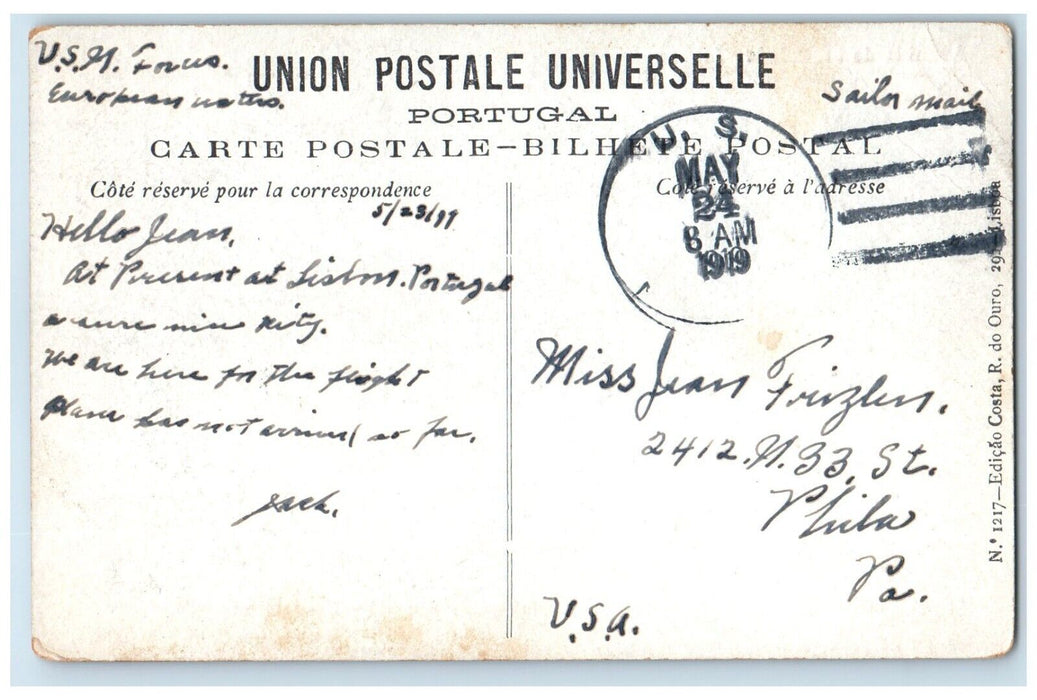 U.S.N. Forces.
European waters.
UNION POSTALE UNIVERSELLE
PORTUGAL
CARTE POSTALE—BILHETE POSTAL
Sailor mail
U. S.
MAY
24
8 AM
1919
Côté réservé pour la correspondence
Côté réservé à l'adresse
5/23/19
Hello Jean,
At Present at Lisbon. Portugal
nice City.
We are here for the flight
Plane has not arrived so far.
Jack.
Miss Jean Frizlen.
2412. N. 33, St.
Phila
Pa.
U.S.A.
N.º 1217—Edição Costa, R. do Ouro, 295—Lisboa